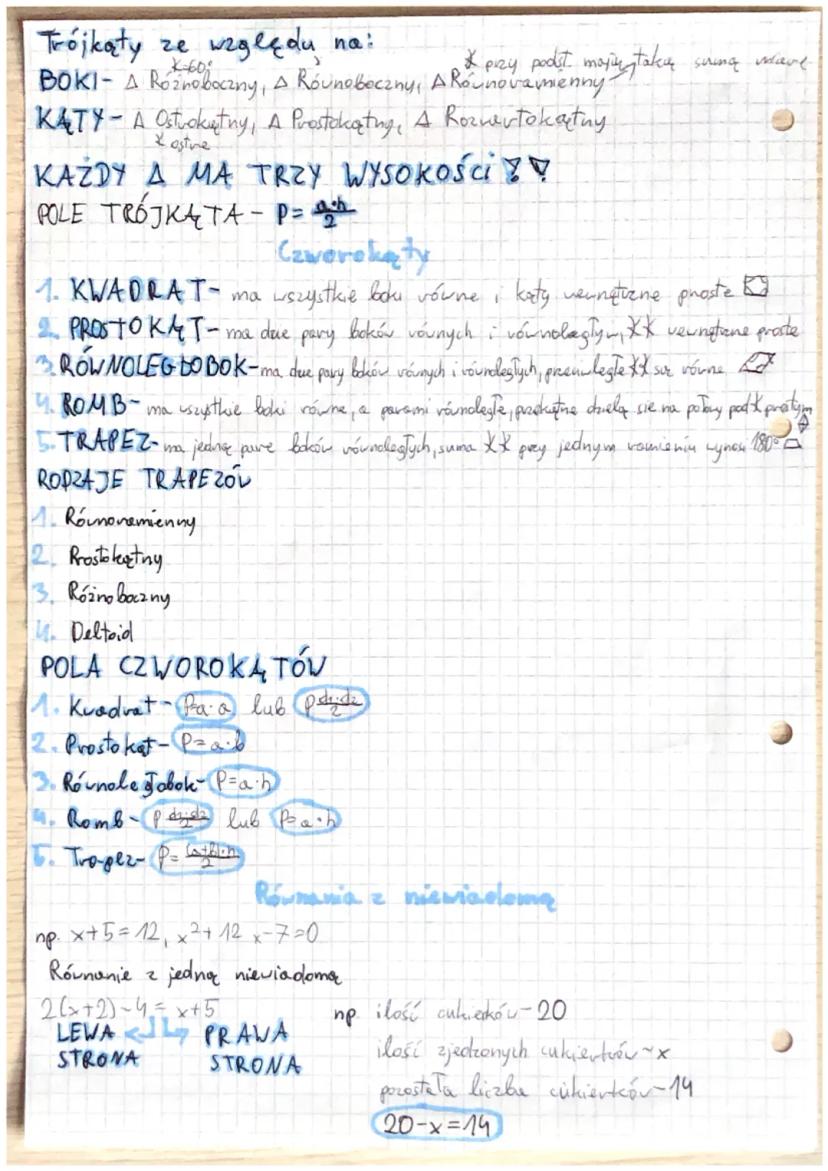 Trójkąty ze względu na:
∢=60°
∢ przy podst. mają taką samą miarę
BOKI - △ Różnoboczny, △ Równoboczny, △ Równoramienny
KĄTY - △ Ostrokątny, △ Prostokątny, △ Rozwartokątny
∢ ostre
KAŻDY △ MA TRZY WYSOKOŚCI
POLE TRÓJKĄTA - P= a·h/2
Czworokąty
1. KWADRAT - ma wszystkie boki równe i kąty wewnętrzne proste
2. PROSTOKĄT - ma dwe pary boków równych i równoległym, ∢∢ wewnętrzne proste
3. RÓWNOLEGŁOBOK - ma dwe pary boków równych i równoległych, przeciwległe ∢∢ są równe
4. ROMB - ma wszystkie boki równe, a parami równoległe, przekątne dzielą się na połowy pod ∢ prostym
5. TRAPEZ - ma jedną parę boków równoległych, suma ∢∢ przy jednym ramieniu wynosi 180°
RODZAJE TRAPEZÓW
1. Równoramienny
2. Prostokątny
3. Różnoboczny
4. Deltoid
POLA CZWOROKĄTÓW
1. Kwadrat - P=a·a lub P d₁·d₂/2
2. Prostokąt - P=a·b
3. Równoległobok - P=a·h
4. Romb - P d₁·d₂/2 lub P=a·h
5. Trapez - P= (a+b)·h/2
Równania z niewiadomą
np. x+5=12, x²+12x-7=0
Równanie z jedną niewiadomą
2(x+2)-4= x+5
LEWA STRONA
PRAWA STRONA
np. ilość cukierków - 20
ilość zjedzonych cukierków - x
pozostała liczba cukierków - 14
20-x=14